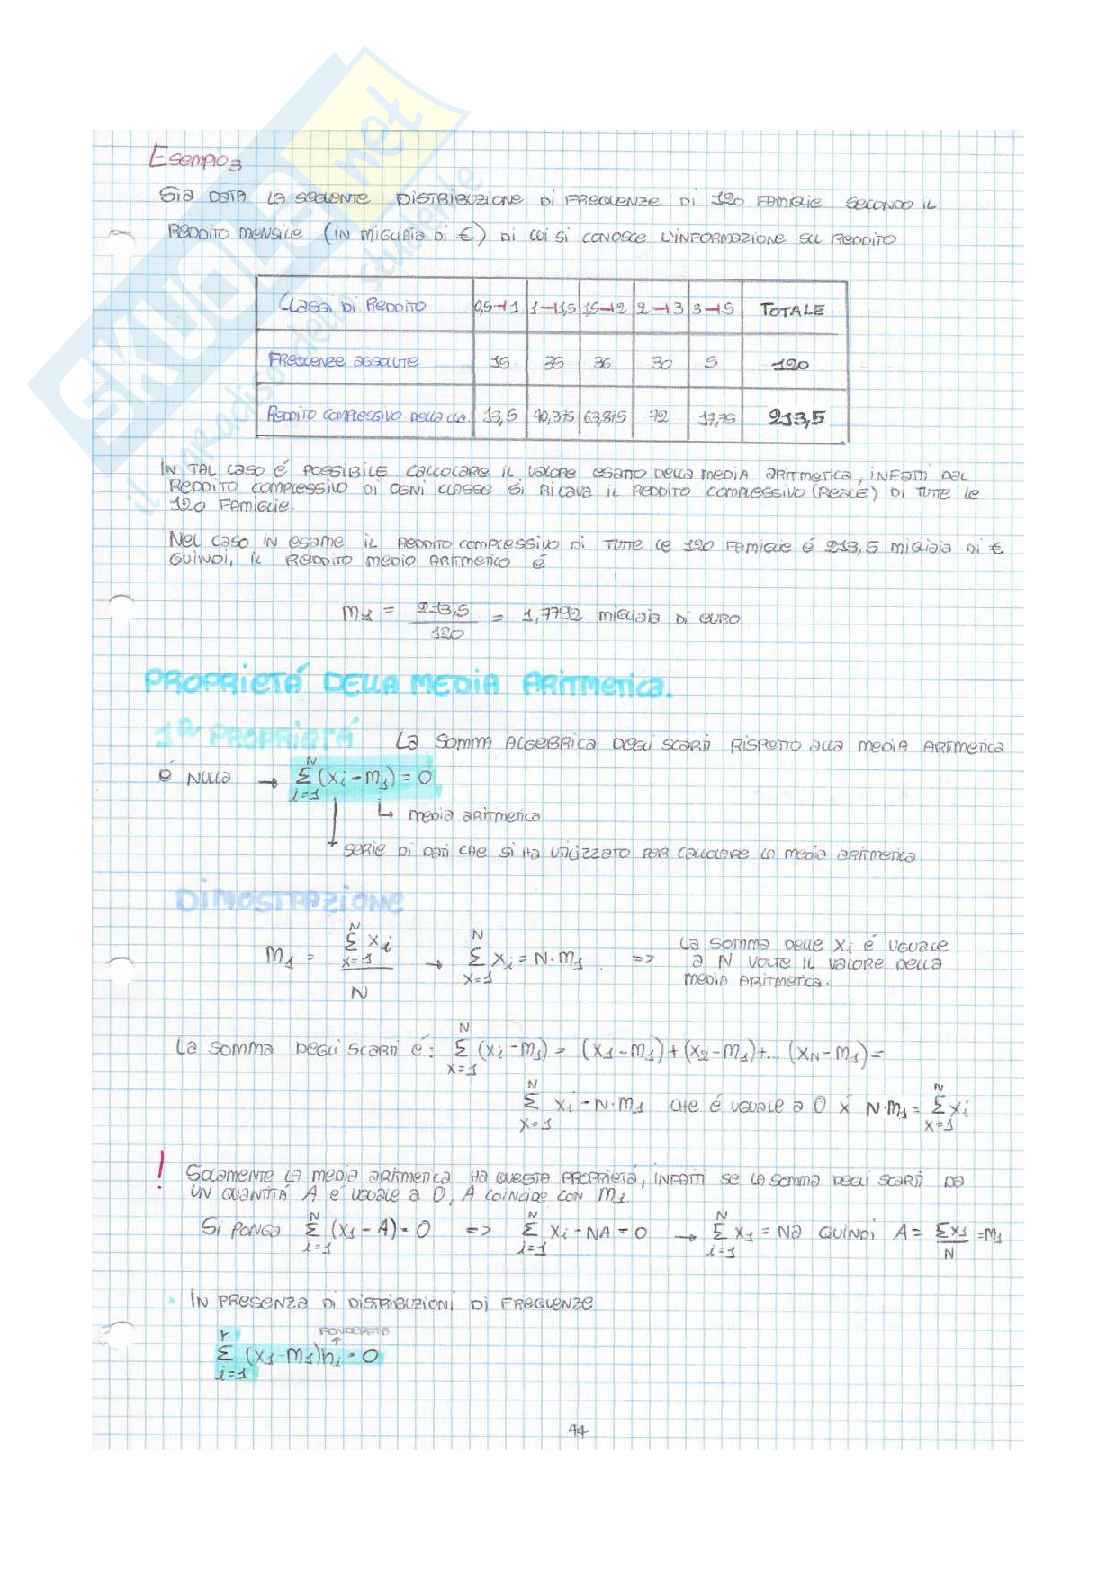 Esempio 3
SIA DATA LA SEGUENTE DISTRIBUZIONE DI FREQUENZE DI 120 FAMIGLIE SECONDO IL
REDDITO MENSILE (IN MIGLIAIA DI €) DI CUI SI CONOSCE L'INFORMAZIONE SUL REDDITO
CLASSI DI REDDITO 0,5⊣1 1⊣1,5 1,5⊣2 2⊣3 3⊣5 TOTALE
FREQUENZE ASSOLUTE 15 35 30 5 120
REDDITO COMPLESSIVO DELLA CLA. 13,5 72 17,75 213,5
IN TAL CASO É POSSIBILE CALCOLARE IL VALORE ESATTO DELLA MEDIA ARITMETICA, INFATTI DAL
REDDITO COMPLESSIVO DI OGNI CLASSE SI RICAVA IL REDDITO COMPLESSIVO (REALE) DI TUTTE LE
120 FAMIGLIE.
NEL CASO IN ESAME IL REDDITO COMPLESSIVO DI TUTTE LE 120 FAMIGLIE É 213,5 MIGLIAIA DI €
QUINDI, IL REDDITO MEDIO ARITMETICO É
m₁ = 213,5 / 120 = 1,7792 MIGLIAIA DI EURO
PROPRIETÁ DELLA MEDIA ARITMETICA.
1ª PROPRIETÁ LA SOMMA ALGEBRICA DEGLI SCARTI RISPETTO ALLA MEDIA ARITMETICA
É NULLA → Σ_{i=1}^{N} (xᵢ - m₁) = 0
↳ MEDIA ARITMETICA
SERIE DI DATI CHE SI HA UTILIZZATO PER CALCOLARE LA MEDIA ARITMETICA
DIMOSTRAZIONE
m₁ = Σ_{x=1}^{N} xᵢ / N → Σ_{x=1}^{N} xᵢ = N·m₁ => LA SOMMA DELLE Xᵢ É UGUALE
A N VOLTE IL VALORE DELLA
MEDIA ARITMETICA.
LA SOMMA DEGLI SCARTI É: Σ_{x=1}^{N} (xᵢ - m₁) = (x₁ - m₁) + (x₂ - m₁) + ... (x_N - m₁) =
Σ_{x=1}^{N} xᵢ - N·m₁ CHE É UGUALE A 0 X N·m₁ = Σ_{x=1}^{N} xᵢ
! SOLAMENTE LA MEDIA ARITMETICA HA QUESTA PROPRIETÁ, INFATTI SE LA SOMMA DEGLI SCARTI DA
UN QUANTITÁ A É UGUALE A 0, A COINCIDE CON m₁
SI PONGA Σ_{i=1}^{N} (x₁ - A) = 0 => Σ_{i=1}^{N} xᵢ - NA = 0 → Σ_{i=1}^{N} x₁ = NA QUINDI A = Σx₁ / N = m₁
• IN PRESENZA DI DISTRIBUZIONI DI FREQUENZE
PONDERATO
Σ_{i=1}^{r} (x₁ - m₁)nᵢ = 0
44
SKUOLA.net
il paradiso dello studente